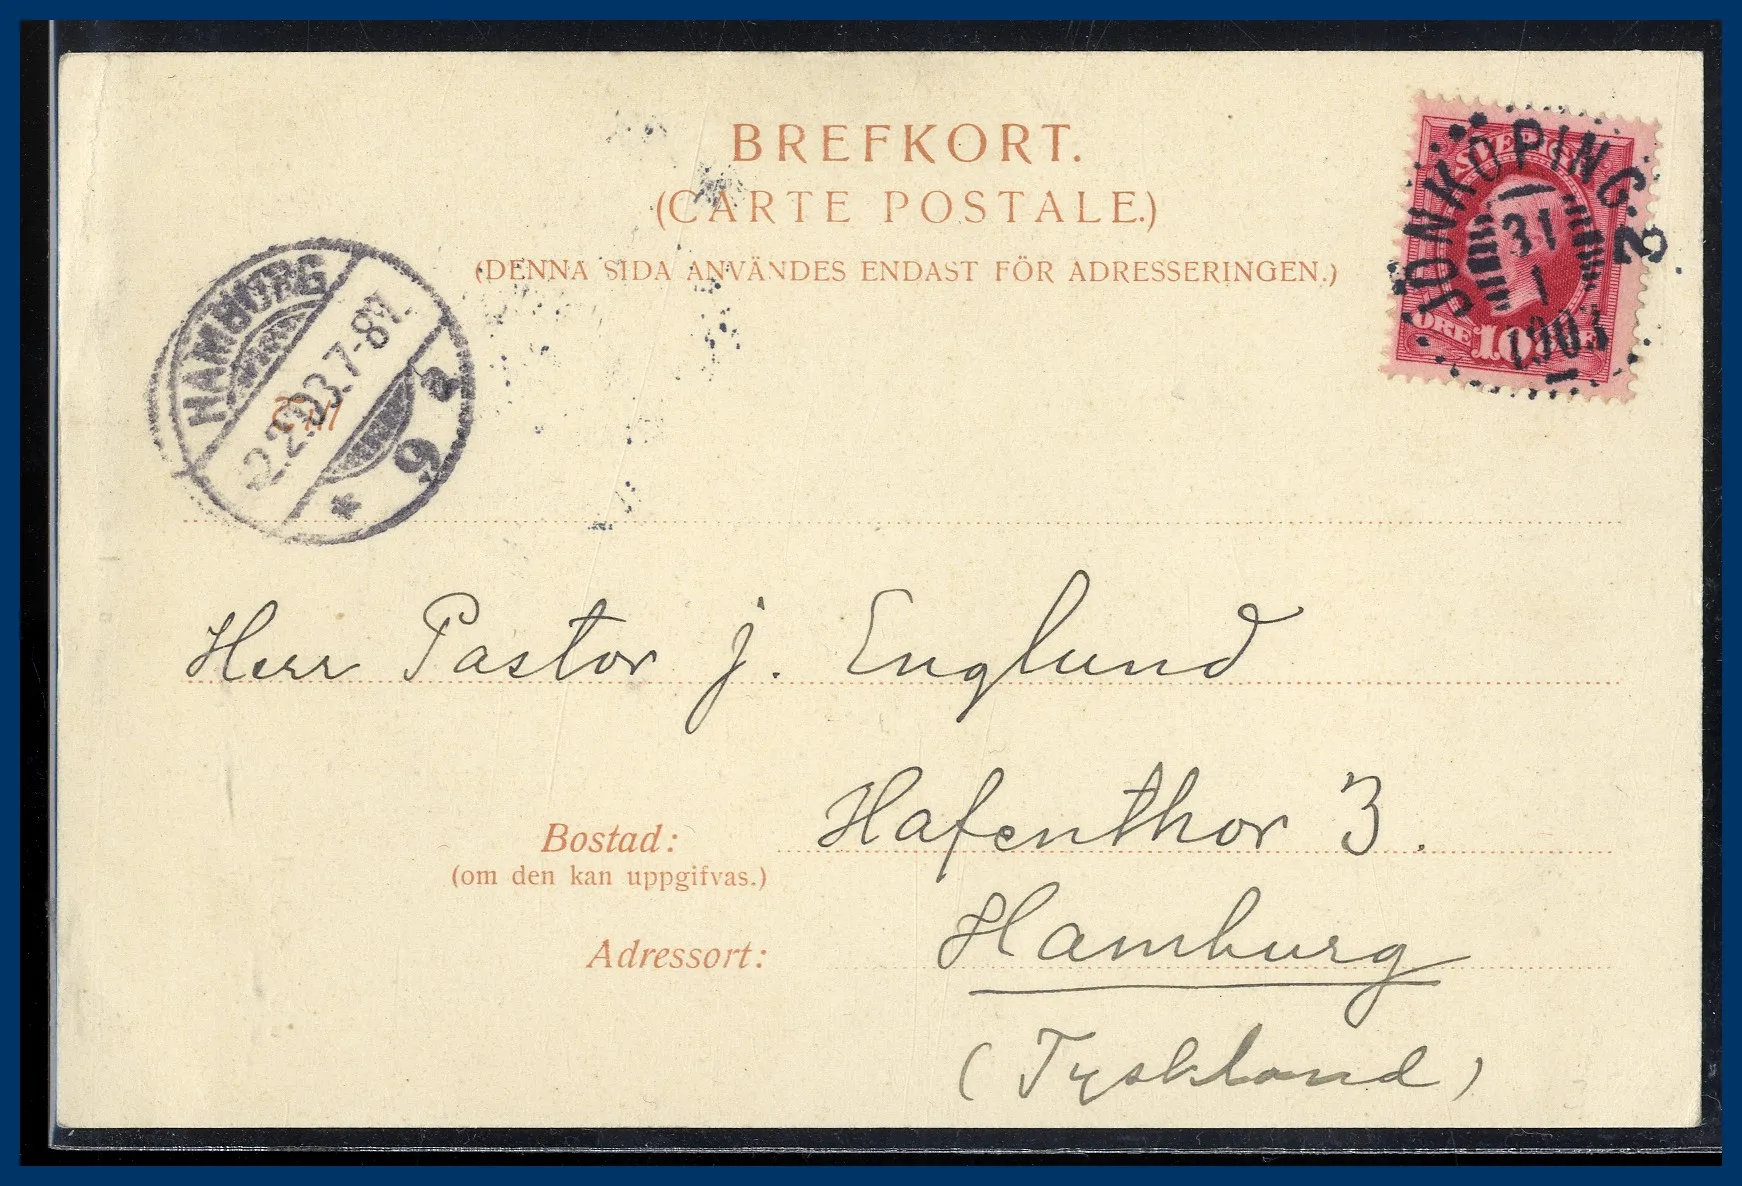 BREFKORT.
(CARTE POSTALE.)
(DENNA SIDA ANVÄNDES ENDAST FÖR ADRESSERINGEN.)
SVERIGE
ÖRE 10 ÖRE
JÖNKÖPING. 3
31
1
1903
HAMBURG
2.2.03.7-8V.
* 9 a
Till
Herr Pastor j. Englund
Bostad: Hafenthor 3.
(om den kan uppgifvas.)
Adressort: Hamburg
(Tyskland)